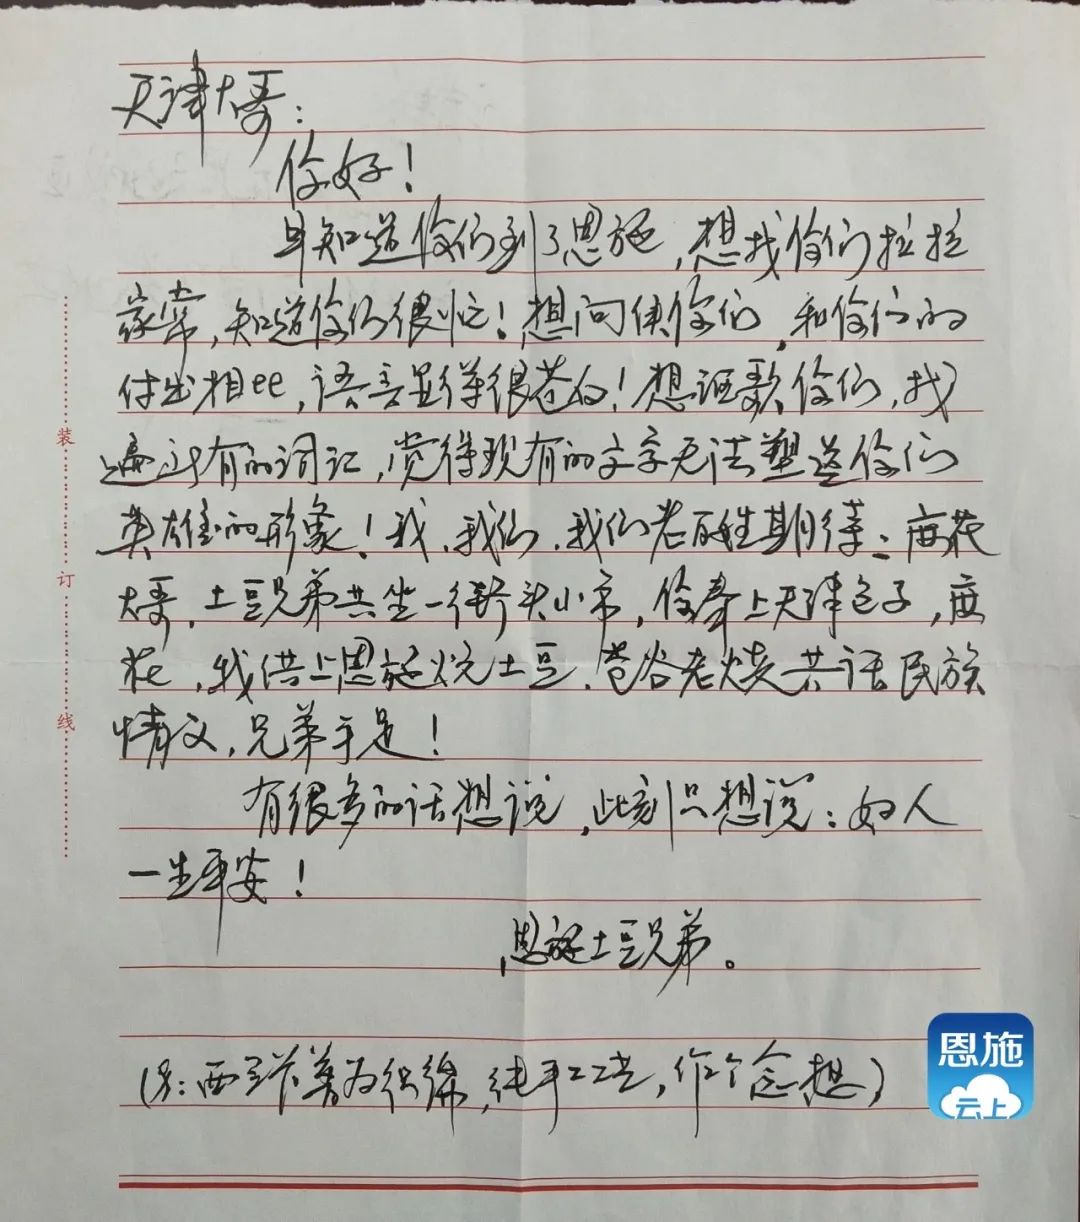 天津大哥：
你好！
早知道你们到了恩施，想找你们拉拉
家常，知道你们很忙！想问候你们，和你们的
付出相比，语言显得很苍白！想讴歌你们，找
遍所有的词汇，觉得现有的文字无法塑造你们
英雄的形象！我、我们、我们老百姓期待：麻花
大哥、土豆兄弟共坐一街头小市，你奉上天津包子，麻
花，我供上恩施炕土豆、苞谷老烧共话民族
情义，兄弟手足！
有很多的话想说，此刻只想说：好人
一生平安！
恩施土豆兄弟。
西兰卡普为织锦，纯手工艺，作个念想）
装
订
线
恩施
云上